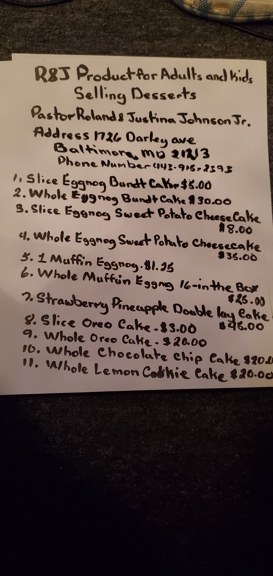 R&J Product for Adults and Kids
Selling Desserts
Pastor Roland & Justina Johnson Jr.
Address 1726 Darley ave
Baltimore, MD 21213
Phone Number
1. Slice Eggnog Bundt Cake $5.00
2. Whole Eggnog Bundt Cake $30.00
3. Slice Eggnog Sweet Potato Cheesecake
$8.00
4. Whole Eggnog Sweet Potato Cheesecake
$35.00
5. 1 Muffin Eggnog $1.25
6. Whole Muffin Eggnog 16-in the Box
$25.00
7. Strawberry Pineapple Double Lay Cake
8. Slice Oreo Cake - $3.00
9. Whole Oreo Cake - $20.00
10. Whole Chocolate Chip Cake $20.00
11. Whole Lemon Cookie Cake $20.00